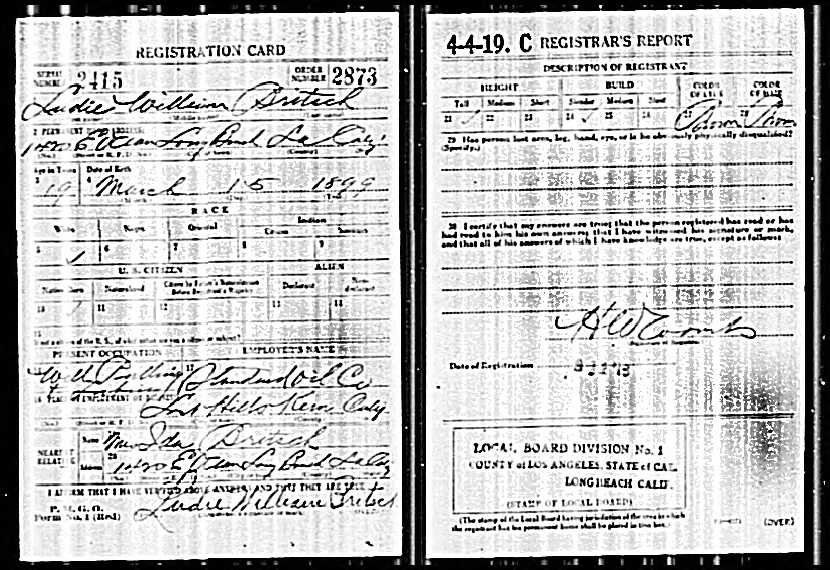 REGISTRATION CARD
SERIAL NUMBER 2415
ORDER NUMBER 2873
William Britsch
(Middle name)
2 PERMANENT HOME ADDRESS:
Long Beach La Caly
Age in Years
Date of Birth
3
4
19
March 15 1899
RACE
White
Negro
Oriental
Indian
Citizen
5 ✓
6
7
8
9
U. S. CITIZEN
ALIEN
Native Born
Naturalized
Citizen by Father's Naturalization
Before Registrant's Majority
Declarant
Non-
declarant
10 ✓
11
12
13
14
15
If not a citizen of the U. S., of what nation are you a citizen or subject?
PRESENT OCCUPATION
EMPLOYER'S NAME
Well Pulling
Standard Oil Co
Lost Hills Kern Caly.
NEAREST RELATIVE
Name
Mrs Ida Britsch
Address
20
Long Beach La Caly
I AFFIRM THAT I HAVE VERIFIED ABOVE ANSWERS AND THAT THEY ARE TRUE
P. M. G. O.
Form No. 1 (Red)
William Britsch
4-4-19. C REGISTRAR'S REPORT
DESCRIPTION OF REGISTRANT
HEIGHT
BUILD
COLOR OF EYES
COLOR OF HAIR
Tall
Medium
Short
Slender
Medium
Stout
21 ✓
22
23
24 ✓
25
26
27 Brown
28 Brown
29 Has person lost arm, leg, hand, eye, or is he obviously physically disqualified?
(Specify.)
30 I certify that my answers are true; that the person registered has read or has
had read to him his own answers; that I have witnessed his signature or mark,
and that all of his answers of which I have knowledge are true, except as follows:
H W Coombs
Date of Registration
LOCAL BOARD DIVISION No. 1
COUNTY of LOS ANGELES, STATE of CAL.
LONG BEACH CALIF.
(STAMP OF LOCAL BOARD)
(The stamp of the Local Board having jurisdiction of the area in which
the registrant has his permanent home shall be placed in this box.)
(OVER)